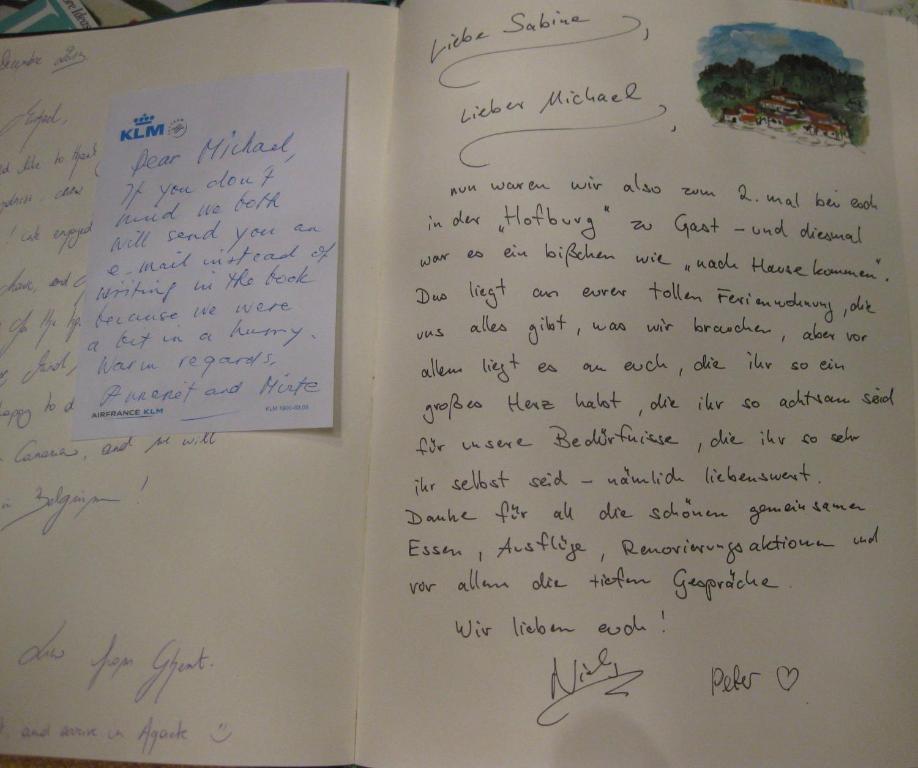 December 2013
like to
enjoyed
have, and
of the
happy to
Canaria, and we will
in Belgium!
from Ghent.
and arrive in Agaete
KLM
Dear Michael,
If you don't
mind we both
will send you an
e-mail instead of
writing in the book
because we were
a bit in a hurry.
Warm regards,
Annemiet and Mirte
AIRFRANCE KLM
Liebe Sabine,
Lieber Michael,
nun waren wir also zum 2. mal bei euch
in der „Hofburg" zu Gast – und diesmal
war es ein bißchen wie „nach Hause kommen".
Das liegt an eurer tollen Ferienwohnung, die
uns alles gibt, was wir brauchen, aber vor
allem liegt es an euch, die ihr so ein
großes Herz habt, die ihr so achtsam seid
für unsere Bedürfnisse, die ihr so sehr
ihr selbst seid – nämlich liebenswert.
Danke für all die schönen gemeinsamen
Essen, Ausflüge, Renovierungsaktionen und
vor allem die tiefen Gespräche.
Wir lieben euch!
Peter ♡